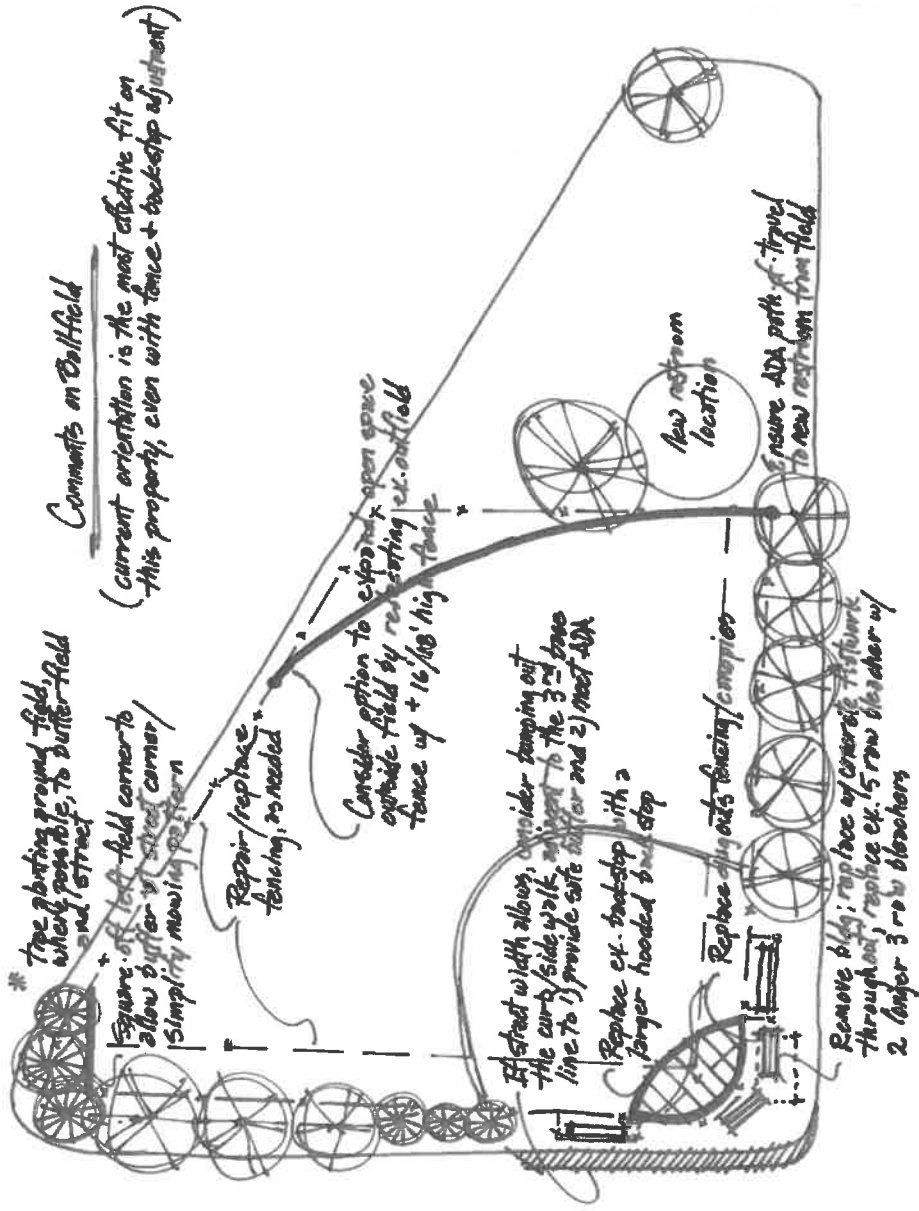 Comments on Ballfield
(current orientation is the most effective fit on
this property, even with fence + backstop adjustment)
* tree planting around field,
where possible, to buffer field
and street
Square off left field corner to
allow buffer w/ street corner/
simplify mowing pattern
Repair/replace
fencing, as needed
Consider option to expand open space
outside field by relocating ex. outfield
fence w/ + 16'/18' high fence
If street width allows, consider bumping out
the curb/sidewalk adjacent to the 3rd base
line to 1) provide safe buffer and 2) meet ADA
Replace ex. backstop with a
larger hooded backstop
Replace dug outs fencing/canopies
New restroom
location
Ensure ADA path of travel
to new restroom from field
Remove bldg; replace w/ concrete flatwork
throughout; replace ex. 15 row bleacher w/
2 longer 3 row bleachers